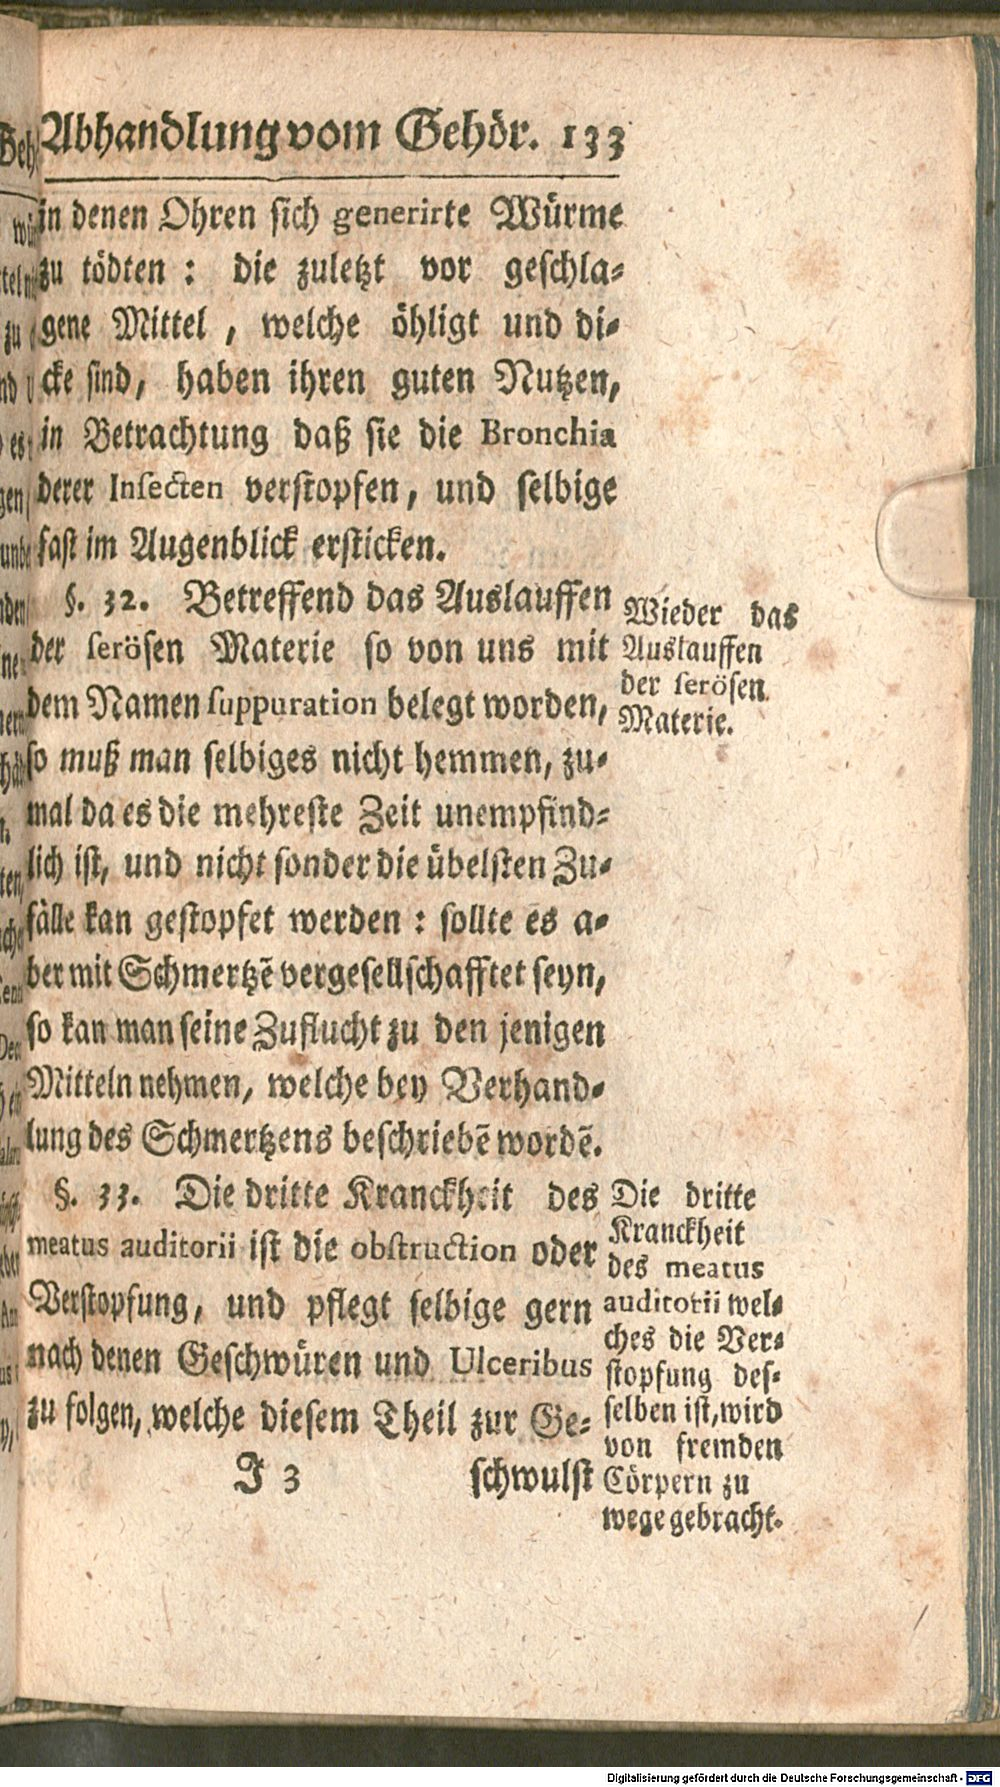 Abhandlung vom Gehör. 133
in denen Ohren sich generirte Würme
zu tödten : die zuletzt vor geschla-
gene Mittel , welche öhligt und di-
cke sind, haben ihren guten Nutzen,
in Betrachtung daß sie die Bronchia
derer Insecten verstopfen, und selbige
fast im Augenblick ersticken.
§. 32. Betreffend das Auslauffen
der serösen Materie so von uns mit
dem Namen suppuration belegt worden,
so muß man selbiges nicht hemmen, zu-
mal da es die mehreste Zeit unempfind-
lich ist, und nicht sonder die übelsten Zu-
fälle kan gestopfet werden : sollte es a-
ber mit Schmertzē vergesellschafftet seyn,
so kan man seine Zuflucht zu den jenigen
Mitteln nehmen, welche bey Verhand-
lung des Schmertzens beschriebē wordē.
§. 33. Die dritte Kranckheit des
meatus auditorii ist die obstruction oder
Verstopfung, und pflegt selbige gern
nach denen Geschwüren und Ulceribus
zu folgen, welche diesem Theil zur Ge-
J 3 schwulst
Wieder das
Auslauffen
der serösen
Materie.
Die dritte
Kranckheit
des meatus
auditorii wel-
ches die Ver-
stopfung des-
selben ist, wird
von fremden
Cörpern zu
wege gebracht.
Digitalisierung gefördert durch die Deutsche Forschungsgemeinschaft - DFG